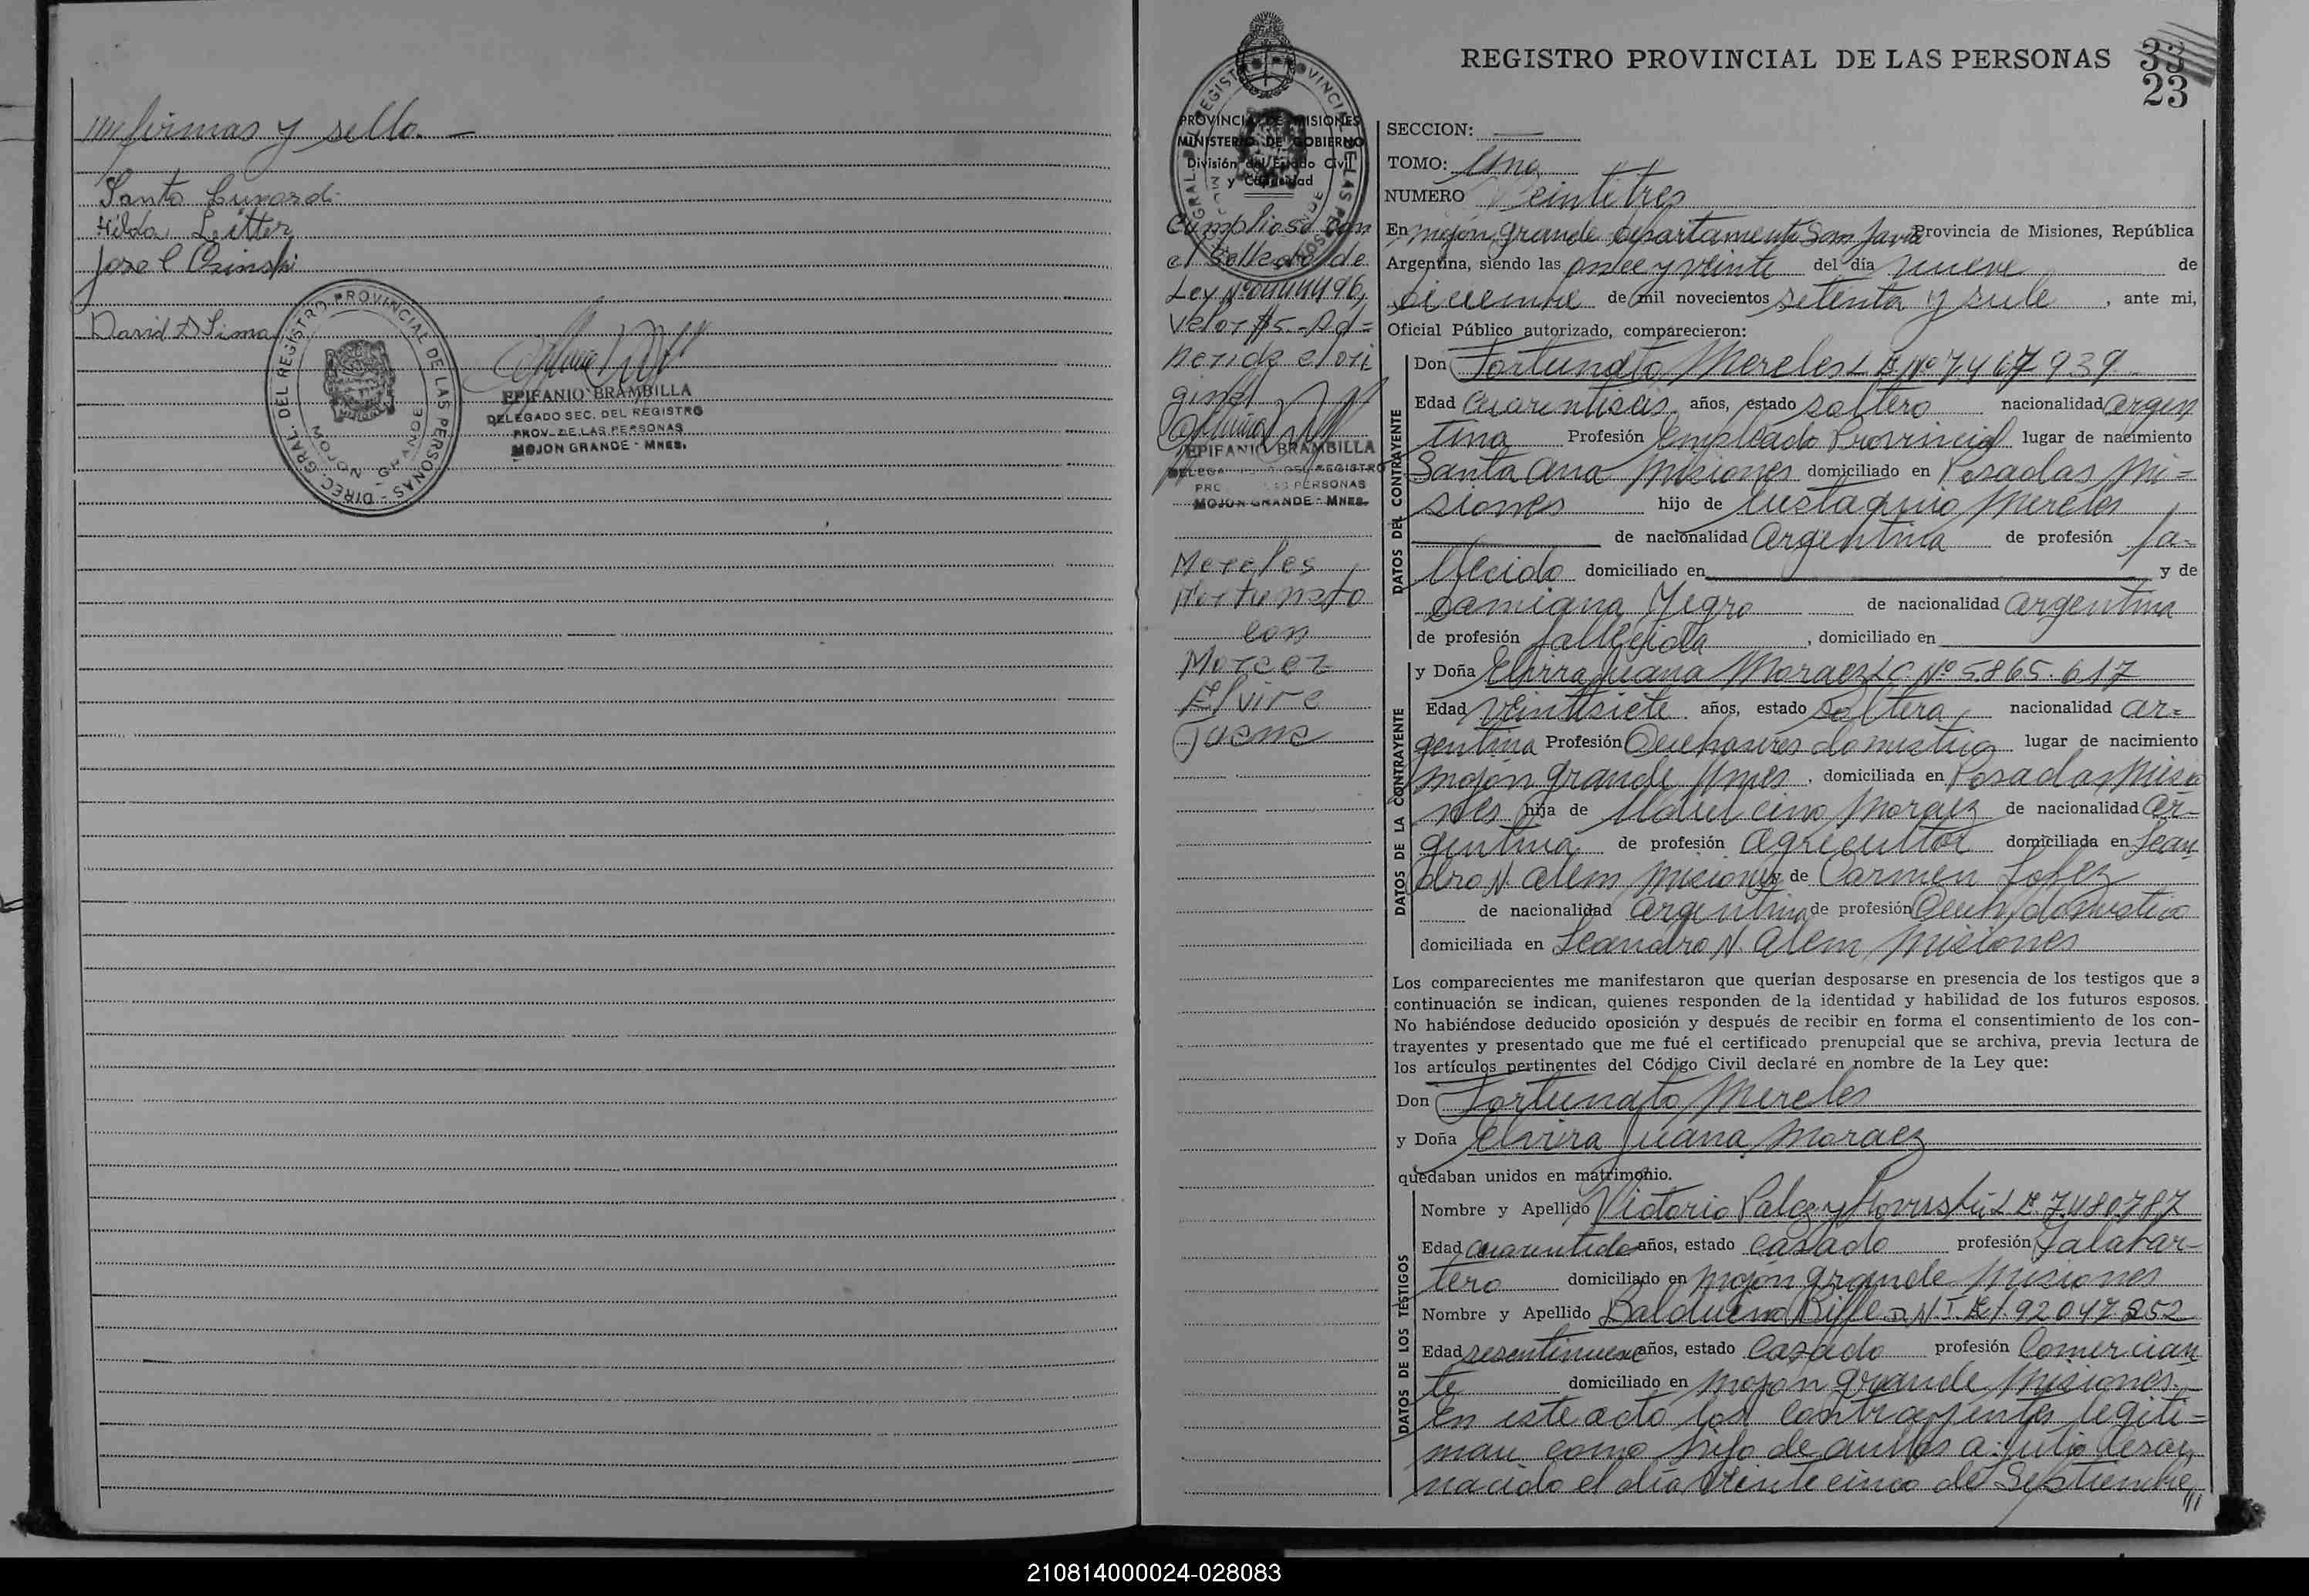 firmas y sello. —
Santo Lunardi
Hilda Leitter
Jose C Osinski
David D Lima
DIREC. GRAL. DEL REGISTRO PROVINCIAL DE LAS PERSONAS
MOJON GRANDE
MISIONES
EPIFANIO BRAMBILLA
DELEGADO SEC. DEL REGISTRO
PROV. DE LAS PERSONAS
MOJON GRANDE - MNES.
REGISTRO PROVINCIAL DE LAS PERSONAS
33
23
PROVINCIA DE MISIONES
MINISTERIO DE GOBIERNO
División del Estado Civil
y Capacidad
Cumpliose con
el Sellado de
Ley Nº
Valor $5.- Ad=
herida el ori
ginal
EPIFANIO BRAMBILLA
DELEGADO SEC. DEL REGISTRO
PROV. DE LAS PERSONAS
MOJON GRANDE - MNES.
Mereles
Fortunato
con
Moraez
Elvira
Juana
SECCION: —
TOMO: Uno
NUMERO Veintitres
En Mojón grande departamento San Javier Provincia de Misiones, República
Argentina, siendo las once y veinte del día nueve de
diciembre de mil novecientos setenta y siete, ante mi,
Oficial Público autorizado, comparecieron:
DATOS DEL CONTRAYENTE
Don Fortunato Mereles L.E. Nº 7.467.939
Edad cuarentiseis años, estado soltero nacionalidad argen
tina Profesión Empleado Provincial lugar de nacimiento
Santa Ana Misiones domiciliado en Posadas Mi=
siones hijo de Eustaquio Mereles
de nacionalidad Argentina de profesión fa-
llecido domiciliado en y de
Damiana Yegro de nacionalidad argentina
de profesión fallecida, domiciliado en
DATOS DE LA CONTRAYENTE
y Doña Elvira Juana Moraez L.C. Nº 5.865.617
Edad veintisiete años, estado soltera, nacionalidad ar=
gentina Profesión Quehaceres domestico lugar de nacimiento
Mojón grande Mnes, domiciliada en Posadas Misio
nes hija de Moraez de nacionalidad ar-
gentina de profesión agricultor domiciliada en Lean
dro N. Alem Misiones y de Carmen Lopez
de nacionalidad argentina de profesión Queh/domestico
domiciliada en Leandro N. Alem, Misiones
Los comparecientes me manifestaron que querían desposarse en presencia de los testigos que a
continuación se indican, quienes responden de la identidad y habilidad de los futuros esposos.
No habiéndose deducido oposición y después de recibir en forma el consentimiento de los con-
trayentes y presentado que me fué el certificado prenupcial que se archiva, previa lectura de
los artículos pertinentes del Código Civil declaré en nombre de la Ley que:
Don Fortunato Mereles
y Doña Elvira Juana Moraez
quedaban unidos en matrimonio.
DATOS DE LOS TESTIGOS
Nombre y Apellido Victorio L.E. 7.480787
Edad cuarentidos años, estado casado profesión Talabar-
tero domiciliado en Mojón grande Misiones
Nombre y Apellido Baldueno D.N.I. 92047252
Edad sesentinueve años, estado Casado profesión Comercian
te domiciliado en Mojón grande Misiones.
En este acto los contrayentes legiti=
man como hijo de ambos a: Julio Cesar,
nacido el día veinte cinco de Septiembre
210814000024-028083